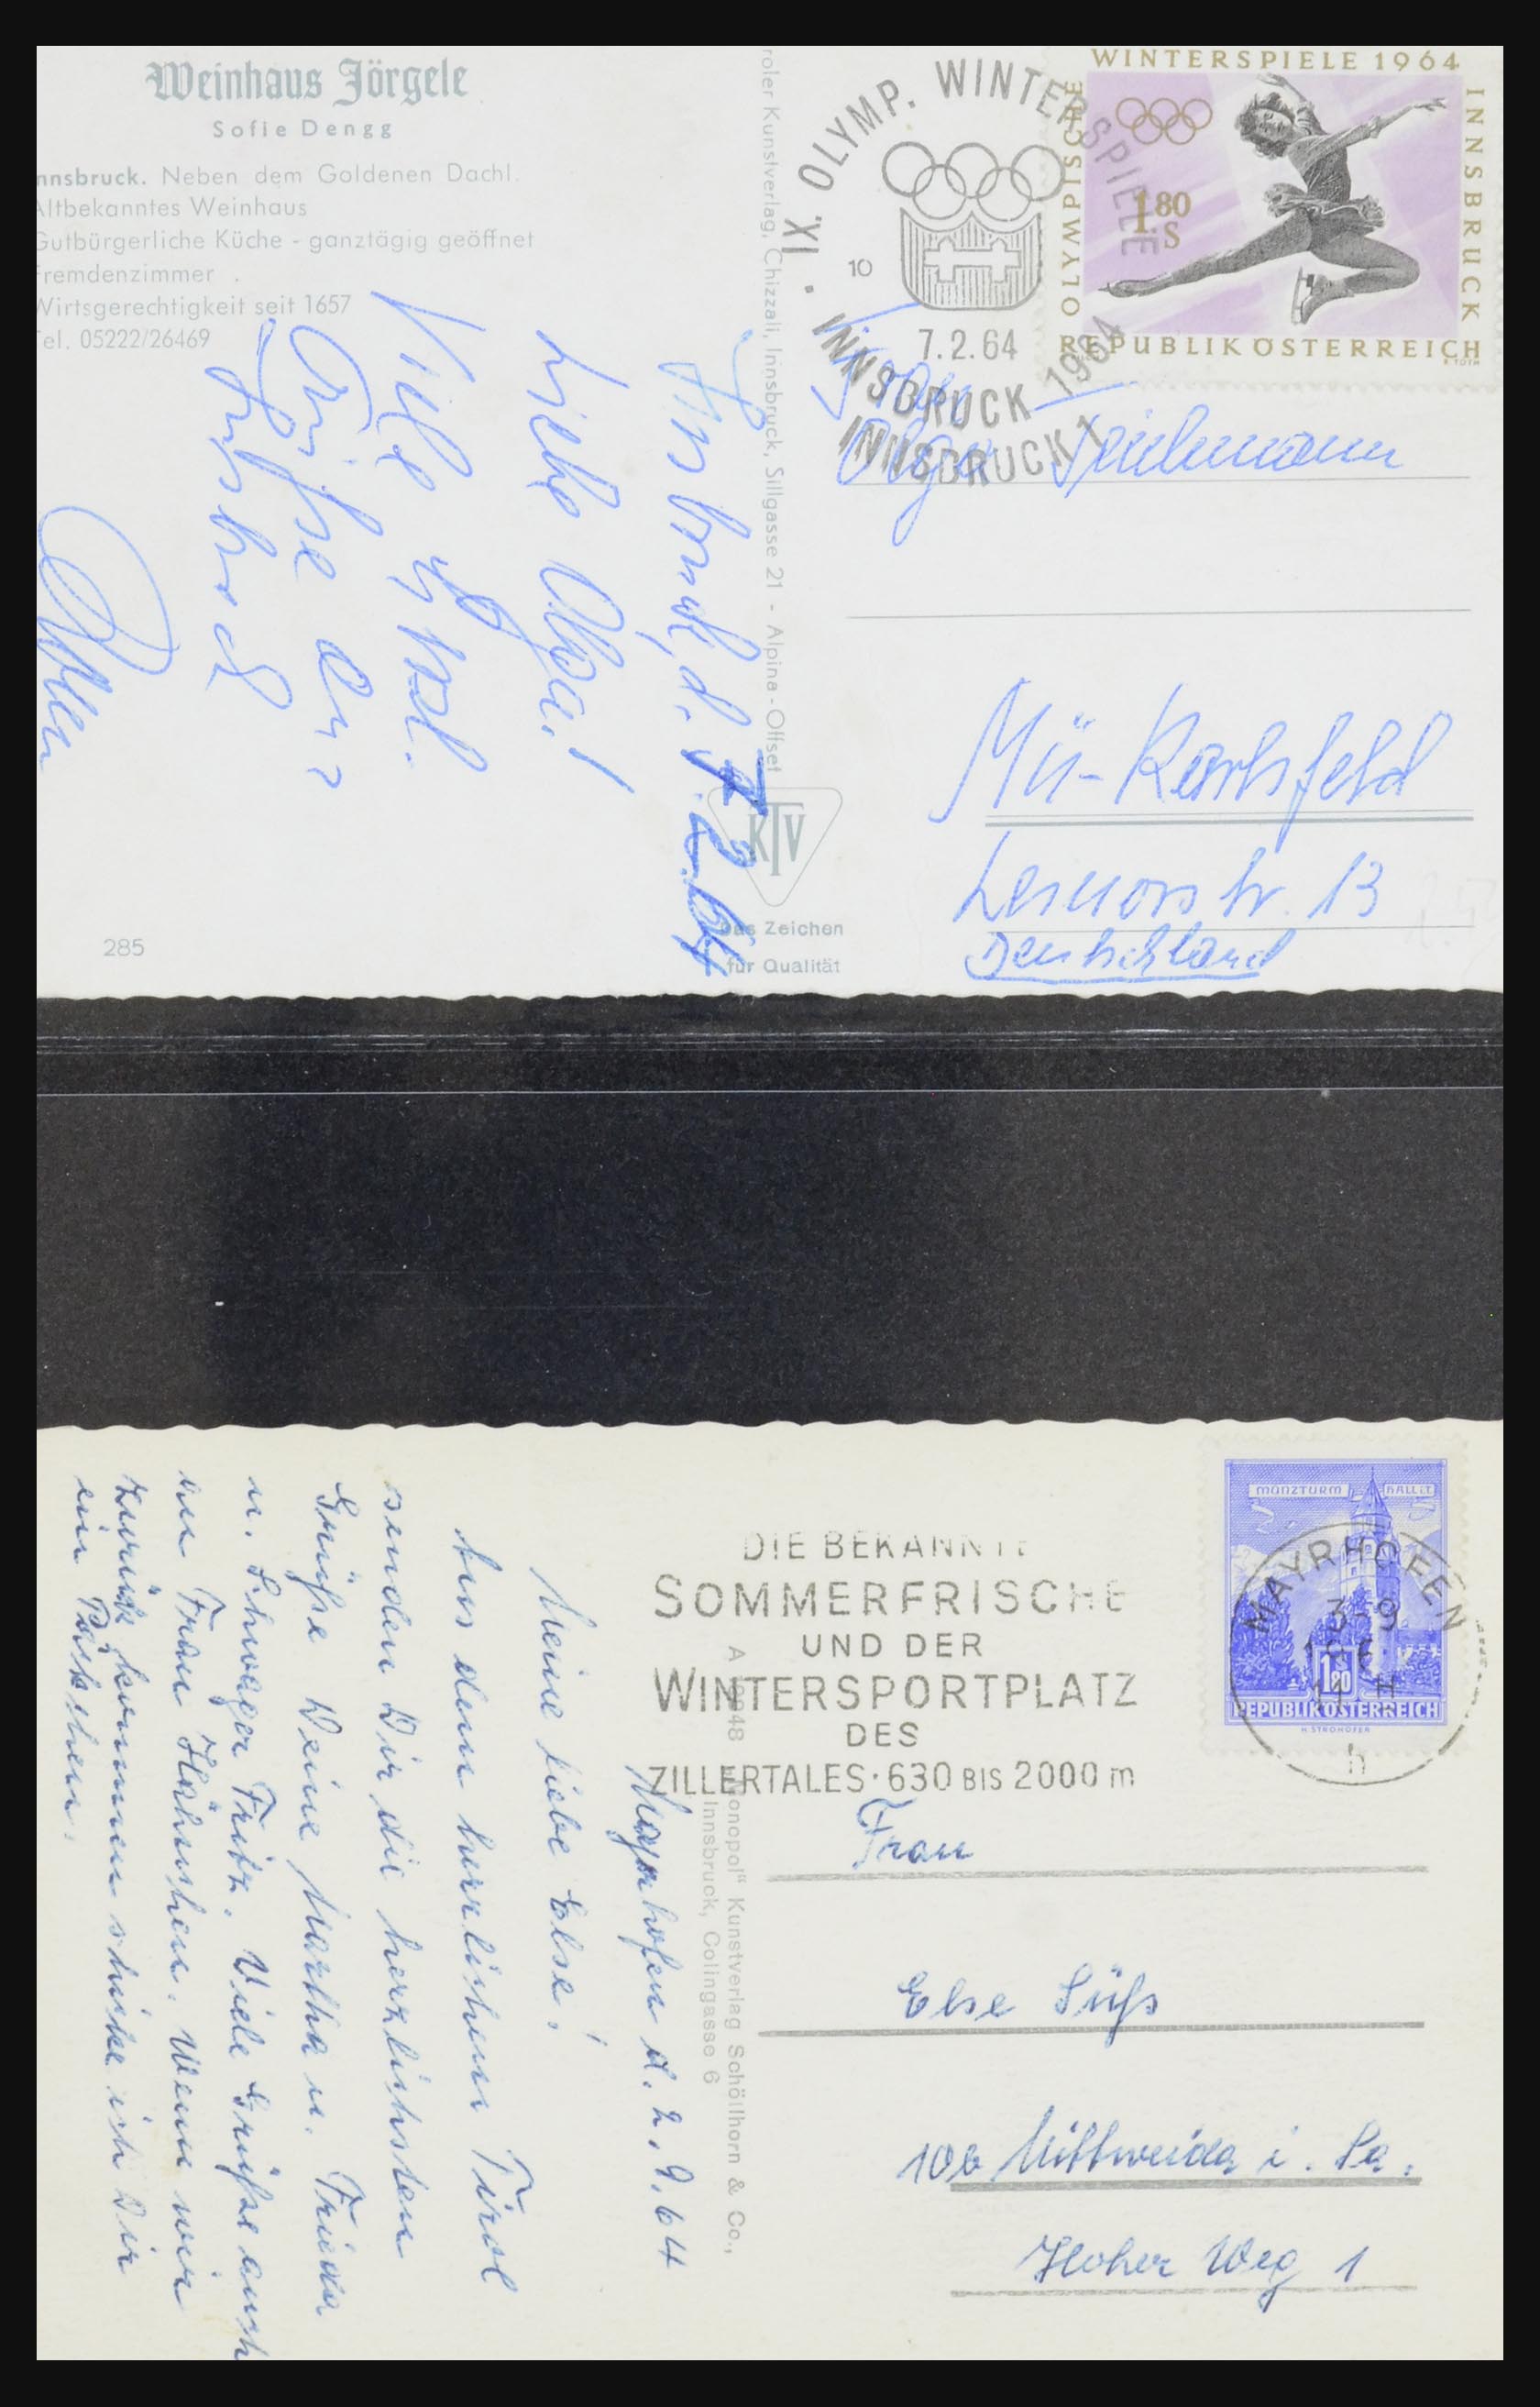 Weinhaus Jörgele
Sofie Dengg
nnsbruck. Neben dem Goldenen Dachl.
Altbekanntes Weinhaus
Gutbürgerliche Küche - ganztägig geöffnet
Fremdenzimmer .
Wirtsgerechtigkeit seit 1657
Tel. 05222/26469
d. 7.2.64
Liebe Olga!
Viele
Grüsse aus
Innsbruck
285
roler Kunstverlag, Chizzali, Innsbruck, Sillgasse 21 - Alpina-Offset
KTV
Das Zeichen
für Qualität
IX. OLYMP. WINTERSPIELE
10
7.2.64
INNSBRUCK 1964
INNSBRUCK 1
OLYMPISCHE
WINTERSPIELE 1964
INNSBRUCK
1.80
S
REPUBLIK ÖSTERREICH
Olga
Mü-Karlsfeld
13
Deutschland
Mayrhofen d. 2.9.64
Meine liebe Else!
Aus dem herrlichen Tirol
senden Dir die herzlichsten
Grüße Deine Martha u. Frieda
u. Schwager Fritz. Viele Grüße auch
an Frau Hähnchen. Wenn wir
zurück kommen schicke ich Dir
ein Päckchen.
DIE BEKANNTE
SOMMERFRISCHE
UND DER
WINTERSPORTPLATZ
DES
ZILLERTALES·630 BIS 2000 m
„Monopol“ Kunstverlag Schöllhorn & Co.,
Innsbruck, Colingasse 6
MÜNZTURM HALL i.T.
1.80
REPUBLIK ÖSTERREICH
H. STROHOFER
MAYRHOFEN
3-9
h
Frau
Else Süß
10b Mittweida i. Sa.
Hoher Weg 1